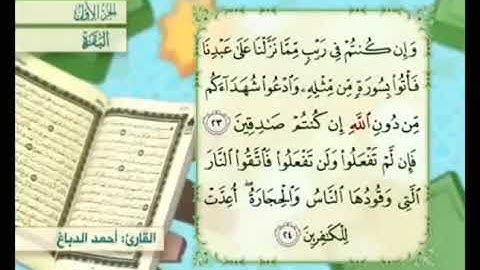 الجزء الأول
البقرة
وَإِن كُنتُمْ فِي رَيْبٍ مِّمَّا نَزَّلْنَا عَلَىٰ عَبْدِنَا
فَأْتُوا۟ بِسُورَةٍ مِّن مِّثْلِهِۦ وَٱدْعُوا۟ شُهَدَآءَكُم
مِّن دُونِ ٱللَّهِ إِن كُنتُمْ صَـٰدِقِينَ ٢٣
فَإِن لَّمْ تَفْعَلُوا۟ وَلَن تَفْعَلُوا۟ فَٱتَّقُوا۟ ٱلنَّارَ
ٱلَّتِي وَقُودُهَا ٱلنَّاسُ وَٱلْحِجَارَةُ ۖ أُعِدَّتْ
لِلْكَـٰفِرِينَ ٢٤
القارئ: أحمد الدباغ